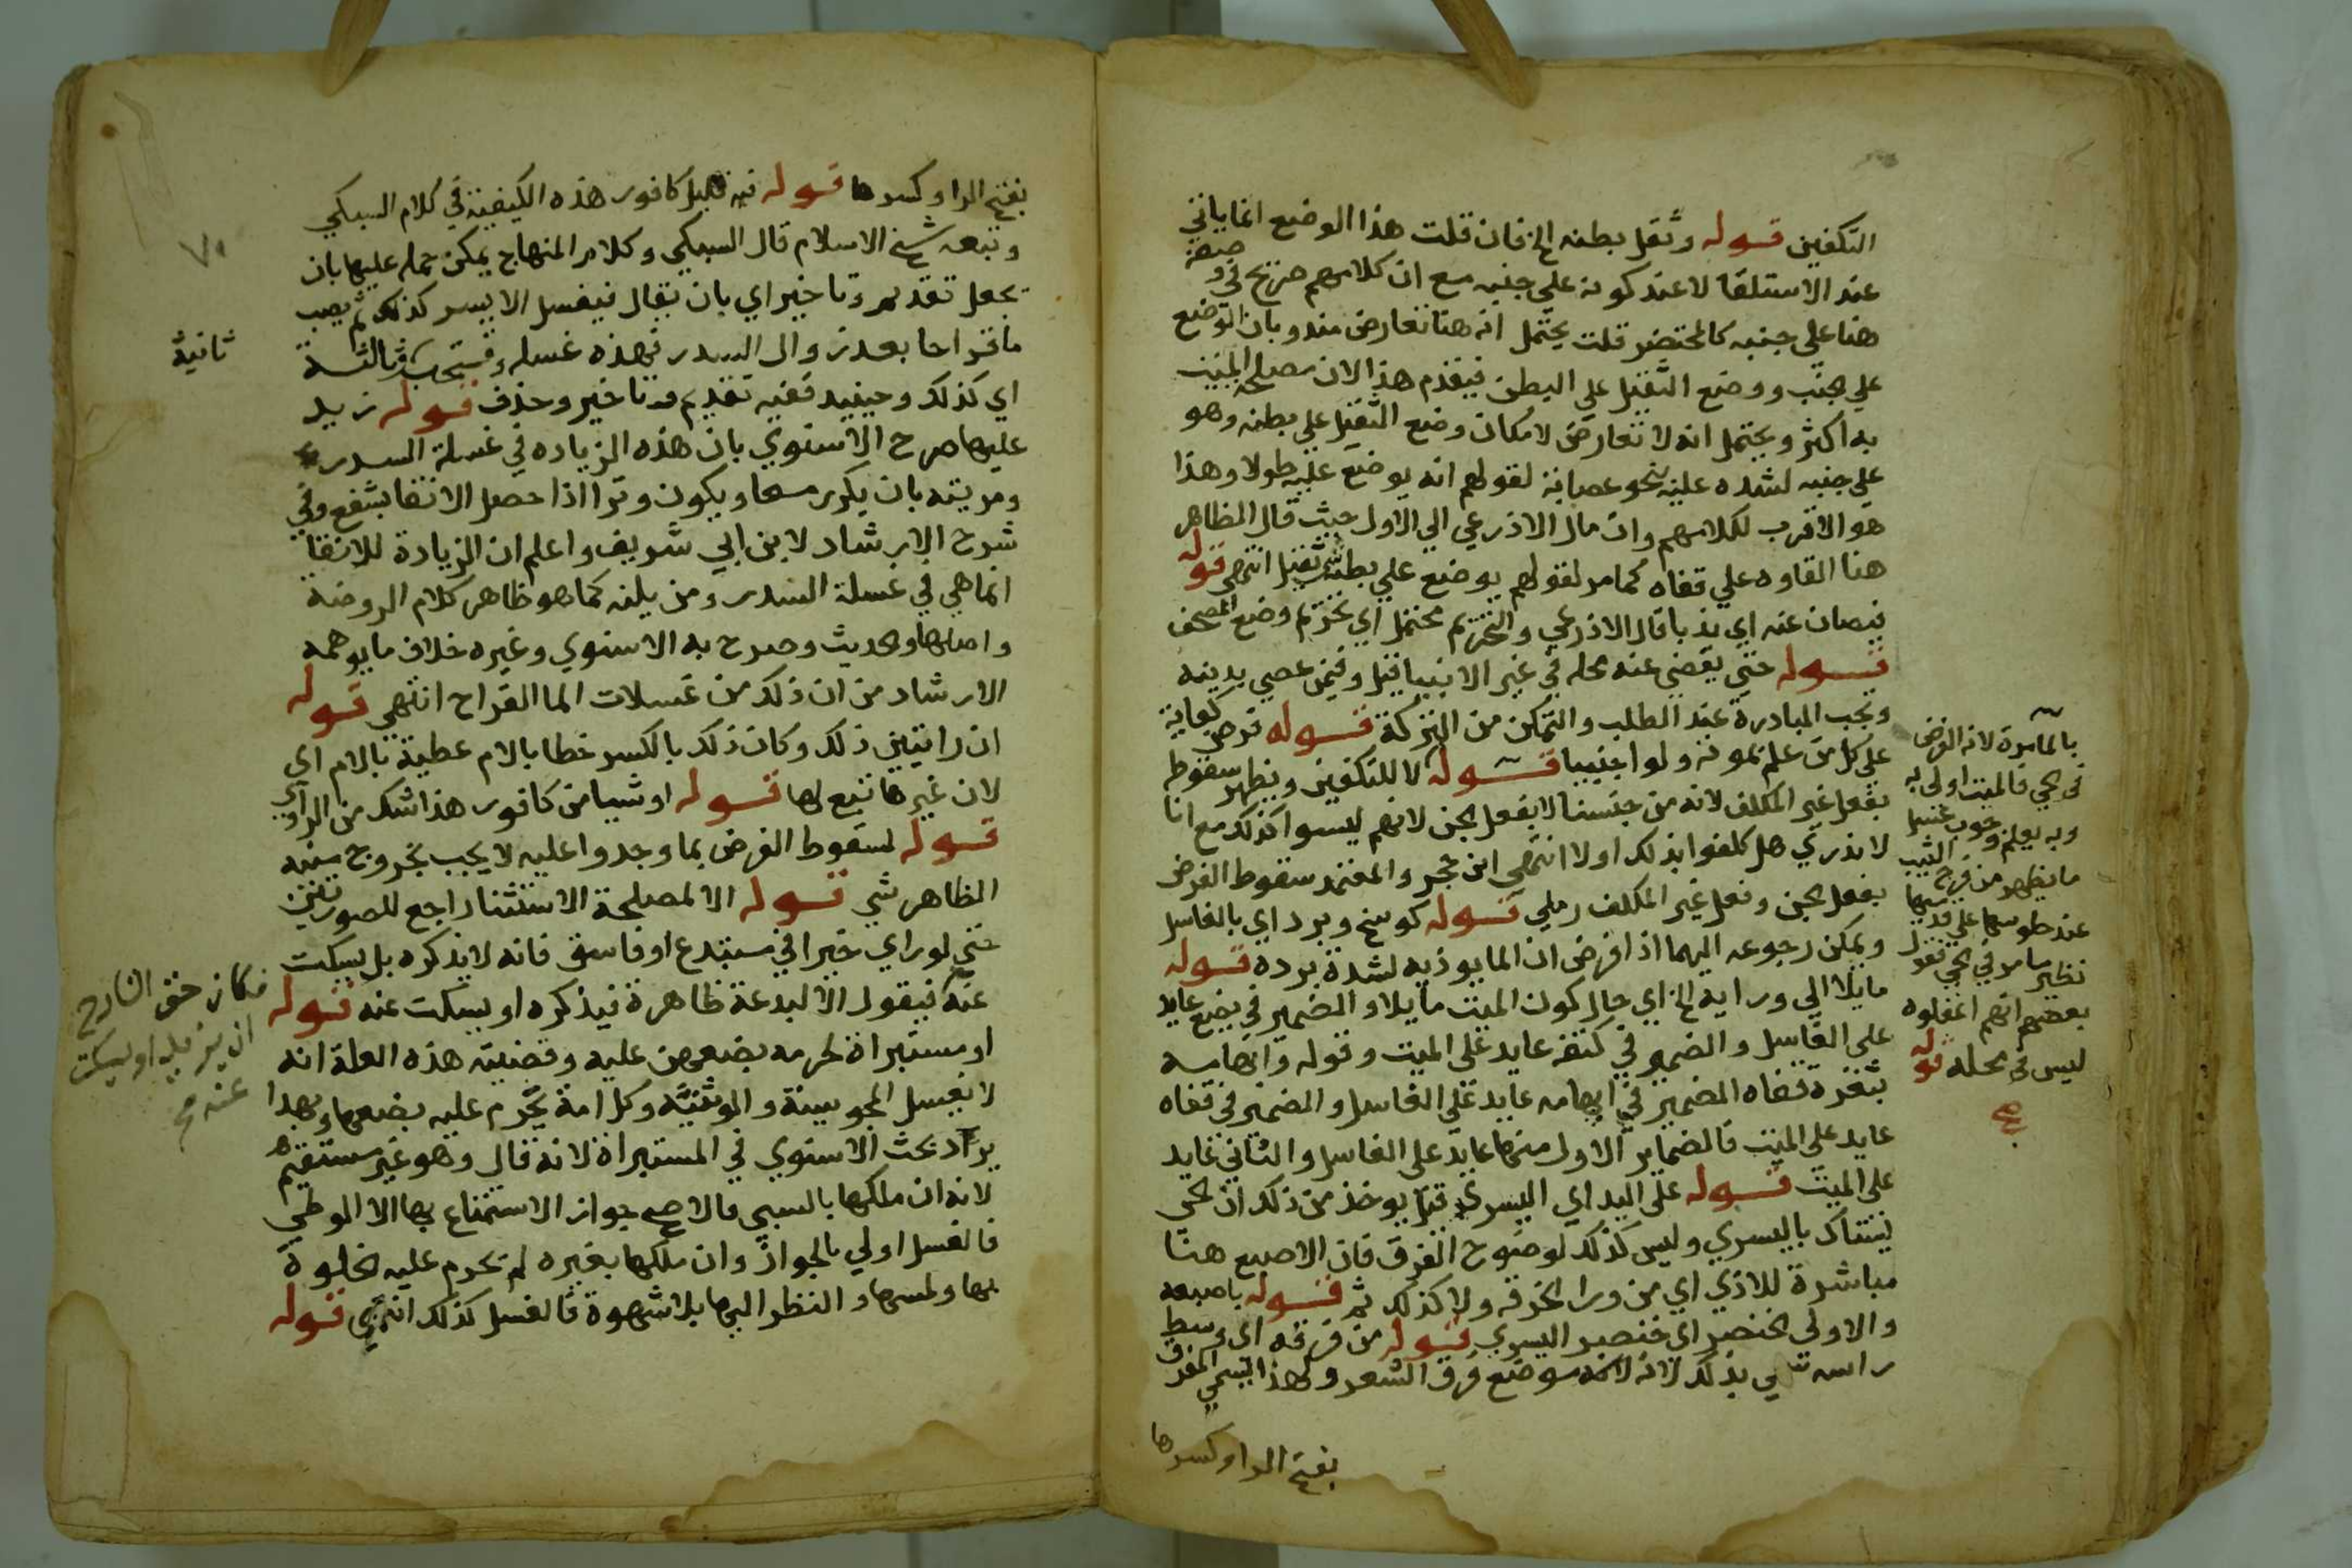 التكفين قوله وثقل بطنه الخ فان قلت هذا الوضع انما ياتي
عند الاستلقا لا عند كونه علي جنبه مع ان كلامهم صريح في وضعه
هنا علي جنبه كالمحتضر قلت يحتمل انه هنا تعارض مندوبان الوضع
علي الجنب ووضع الثقيل علي البطن فيقدم هذا لان مصلحة الميت
به اكثر ويحتمل انه لا تعارض لامكان وضع الثقيل علي بطنه وهو
علي جنبه لشده عليه بنحو عصابة لقولهم انه يوضع عليه طولا وهذا
هو الاقرب لكلامهم وان مال الاذرعي الي الاول حيث قال الظاهر
هنا القاوه علي قفاه كما مر لقولهم يوضع علي بطنه ثقيل انتهي قوله
فيصان عنه اي ندبا قال الاذرعي والتحريم محتمل اي تحريم وضع المصحف
قوله حتي يقضي عنه محله في غير الانبيا قيل وفيمن عصي بدينه
ويجب المبادرة عند الطلب والتمكن من التركة قوله فرض كفاية
علي كل من علم بموته ولو اجنبيا قوله لا للتكفين ويظهر سقوط
بفعل غير المكلف لانه من جنسنا لا بفعل الجن لانهم ليسوا كذلك مع انا
لا ندري هل كلفوا بذلك اولا انتهي ابن حجر والمعتمد سقوط الفرض
بفعل الجن وفعل غير المكلف رملي قوله كوسخ وبرد اي بالغاسل
ويمكن رجوعه اليهما اذا فرض ان الما يوذيه لشدة برده قوله
مايلا الي ورايه الخ اي حال كون الميت مايلا والضمير في يضع عايد
علي الغاسل والضمير في كتفه عايد علي الميت وقوله وابهامه
بنقرة قفاه الضمير في ابهامه عايد علي الغاسل والضمير في قفاه
عايد علي الميت فالضماير الاول منها عايد علي الغاسل والثاني عايد
علي الميت قوله علي اليد اي اليسري قيل يوخذ من ذلك ان الحي
يستاك باليسري وليس كذلك لوضوح الفرق فان الاصبع هنا
مباشرة للاذي اي من ورا الخرقه ولا كذلك ثم قوله باصبعه
والاولي الخنصر اي خنصر اليسري قوله من فرقه اي وسط
راسه سمي بذلك لانه موضع فرق الشعر ولهذا يسمي المفرق
بفتح الرا وكسرها
بالمامرة لانه الفرض
في الحي فالميت اولي به
وبه يعلم وجوب غسل
ما يظهر من فرج الثيب
عند جلوسها علي قدميها
نظير ما مر في الحي فقول
بعضهم انهم اغفلوه
ليس في محله قوله
صح
بفتح الرا وكسرها قوله فيه قليل كافور هذه الكيفية في كلام السبكي
وتبعه شيخ الاسلام قال السبكي وكلام المنهاج يمكن حمله عليها بان
يجعل تقديم وتاخير اي بان يقال فيغسل الايسر كذلك ثم يصب
ما قراحا بعد زوال السدر فهذه غسله وتستحب وثالثة
ثانية
اي كذلك وحينيد ففيه تقديم وتاخير وحذف قوله زيد
عليها صرح الاسنوي بان هذه الزياده في غسلة السدر
ومزيته بان يكرر مسحا ويكون وترا اذا حصل الانقا بشفع وفي
شرح الارشاد لابن ابي شريف واعلم ان الزيادة للانقا
انما هي في غسلة السدر ومن يلفه كما هو ظاهر كلام الروضة
واصلها والحديث وصرح به الاسنوي وغيره خلاف ما يوهمه
الارشاد من ان ذلك من غسلات الما القراح انتهي قوله
ان رايتين ذلك وكان ذلك بالكسر خطابا لام عطية بالام اي
لان غيرها تبع لها قوله او شيا من كافور هذا شك من الراوي
قوله لسقوط الفرض بما وجد واعليه لا يجب بخروج منيه
الظاهر شي قوله الا لمصلحة الاستثنا راجع للصورتين
حتي لو راي خيرا في مبتدع او فاسق فانه لا يذكره بل يسكت
عنه فيقول الا لبدعة ظاهرة فيذكره او يسكت عنه قوله
او مستبراة لحرمه بضعهن عليه وقضيته هذه العلة انه
لا يغسل المجوسية والوثنية وكل امة يحرم عليه بضعها وبهذا
يراد بحث الاسنوي في المستبراة لانه قال وهو غير مستقيم
لانه ان ملكها بالسبي فالاصح جواز الاستمتاع بها الا الوطي
فالغسل اولي بالجواز وان ملكها بغيره لم تحرم عليه الخلوة
بها ولمسها والنظر اليها بلا شهوة فالغسل كذلك انتهي قوله
فكان حق الشارح
ان يزيد او يسكت
عنه صح
٧٠